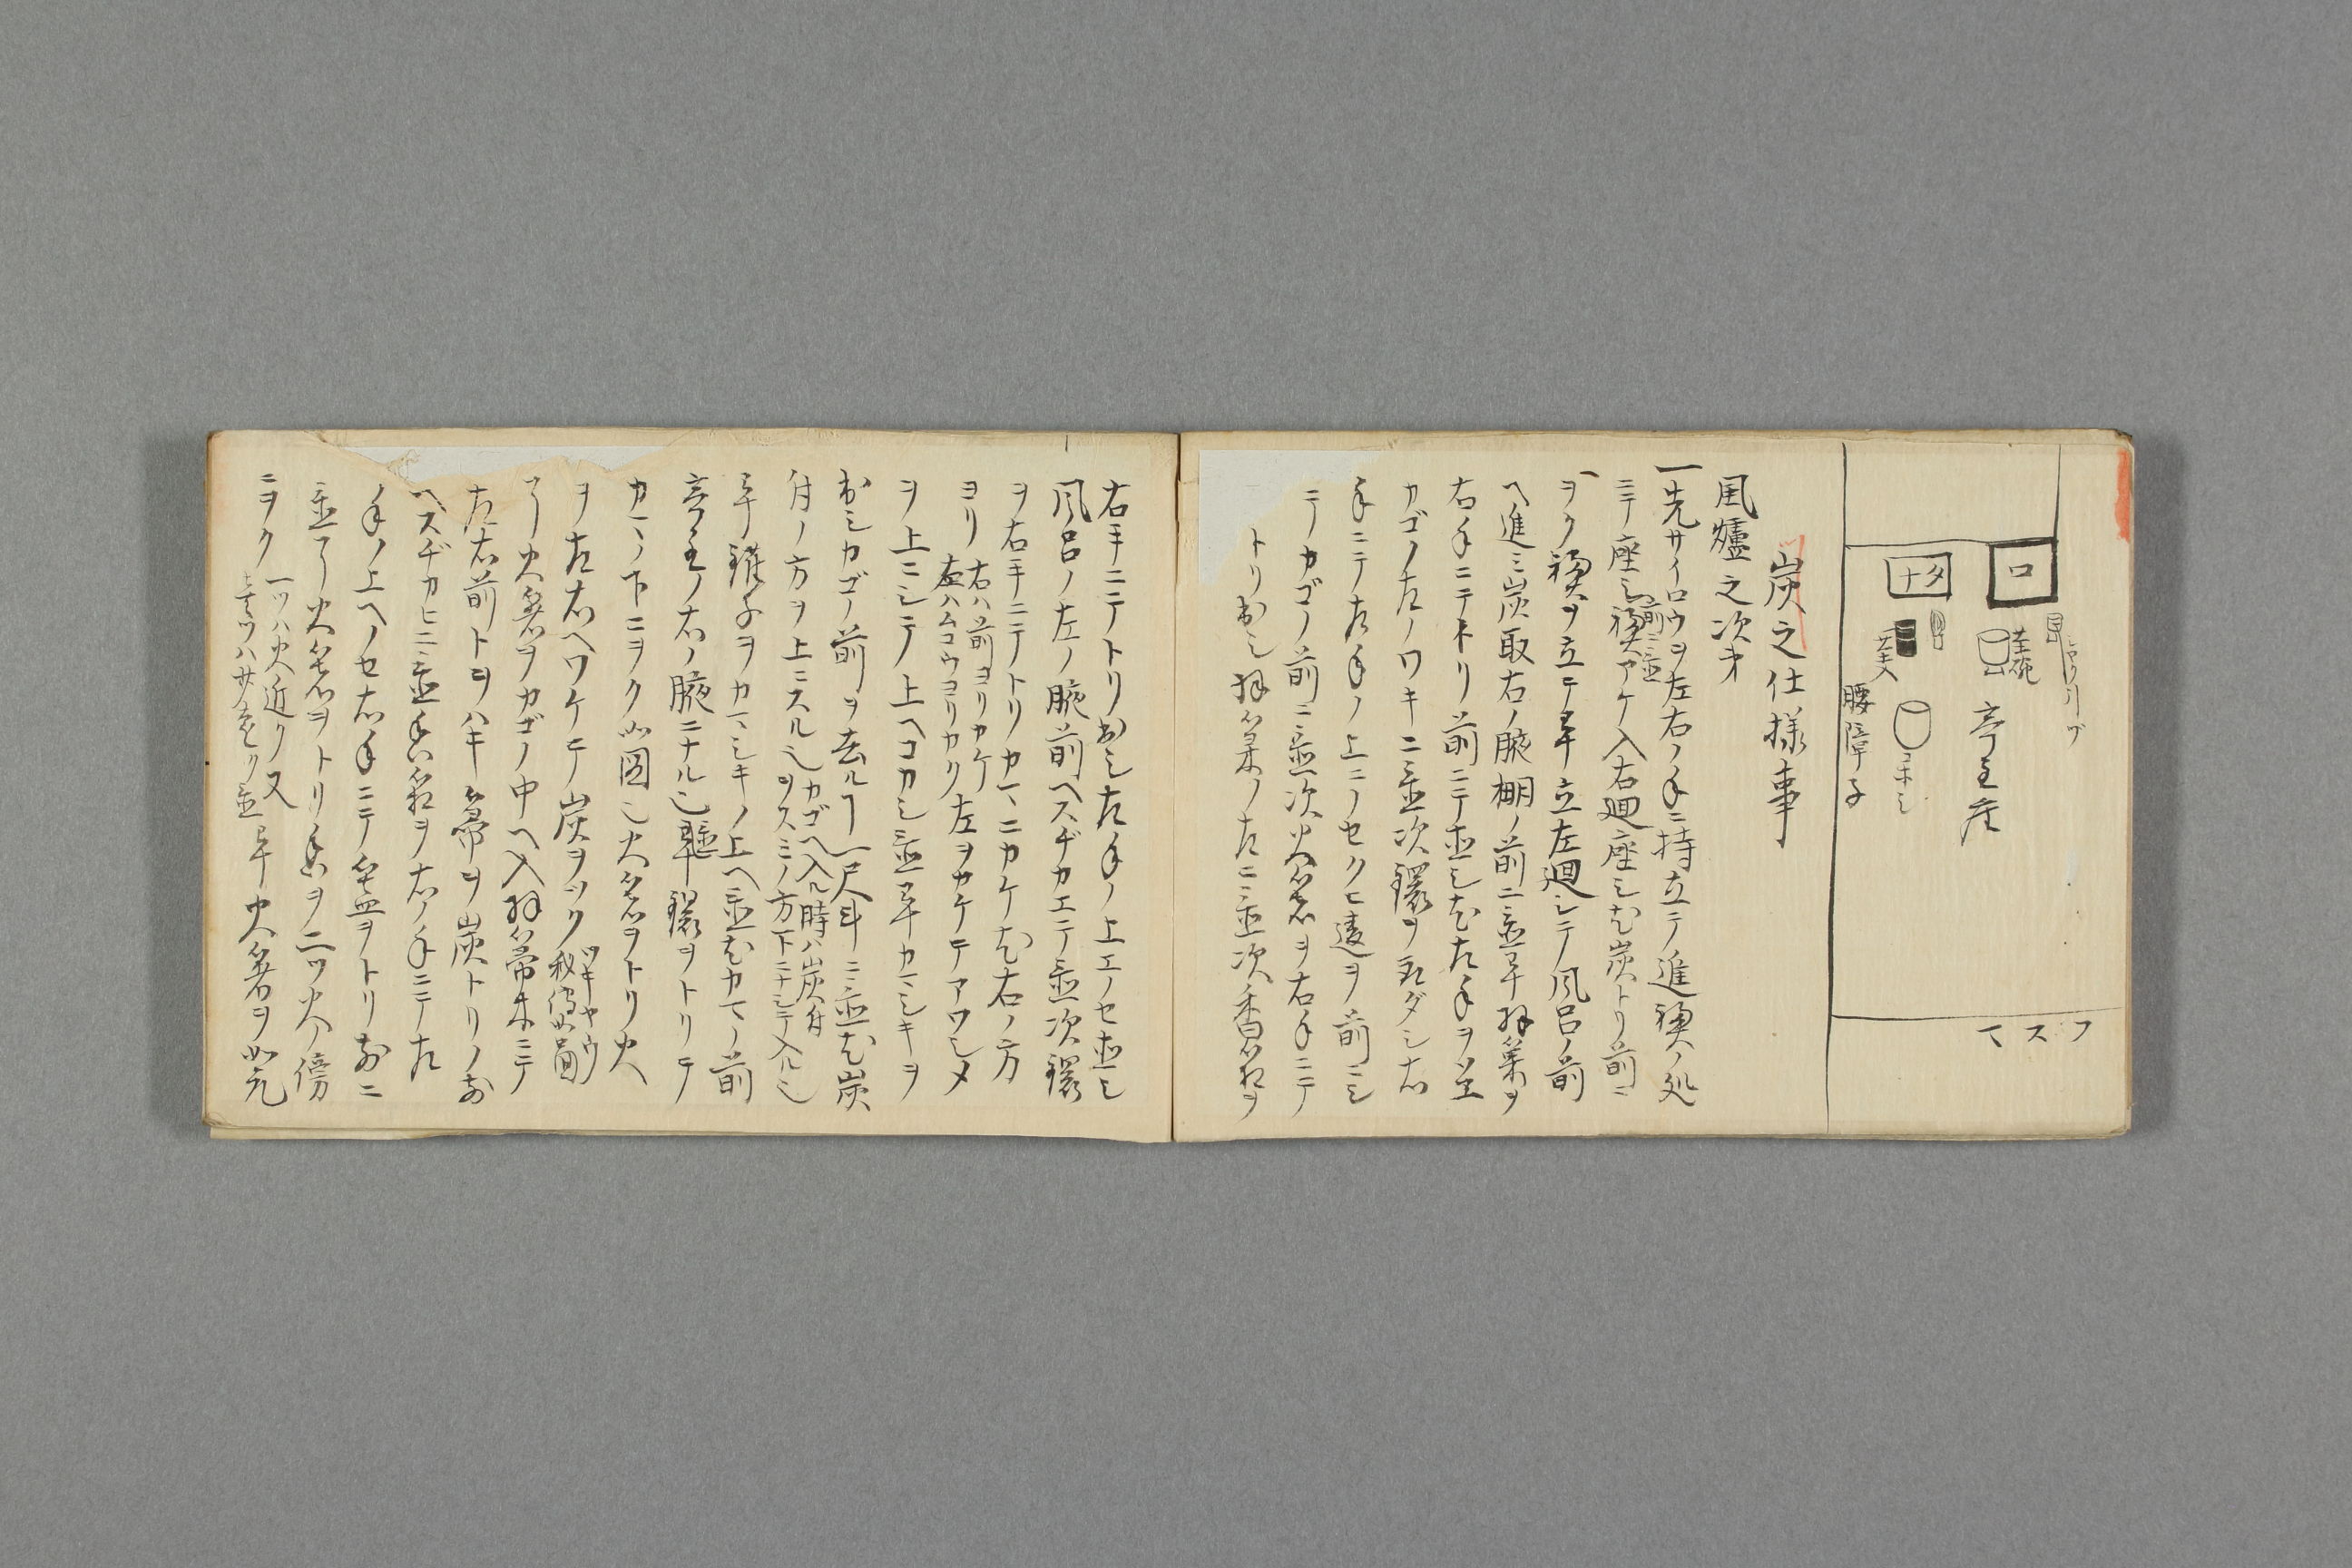 ロ
タナ
茶碗
亭主座
コホシ
腰障子
フスマ
炭之仕様事
風爐之次才
一先サイロウヲ左右ノ手ニ持立テ進襖ノ処
ニテ座シ前ニ置襖アケ入右廻座シ炭トリ前ニ
ヲク襖ヲ立テ立左廻シテ風呂ノ前
ヘ進ミ炭取右ノ腋棚ノ前ニ置羽箒ヲ
右手ニテトリ前ニテ左手ヲ
カゴノ左ノワキニ置次鐶ヲ右
手ニテ左手ノ上ニノセ前ニ
テカゴノ前ニ置次火箸ヲ右手ニテ
トリ出シ羽箒ノ左ニ置次香箱ヲ
右手ニテトリ出シ左手ノ上エノセ
風呂ノ左ノ腋前ヘスヂカエニテ置次鐶
ヲ右手ニテトリカマニカケ右ノ方
ヨリ右ハ前ヨリカケ左ハムコウヨリカク左ヲカケテアワシメ
ヲ上ニシテ上ヘコカシ置カマシキヲ
出シカゴノ前ヲ去ル一尺斗ニ置炭
付ノ方ヲ上ニスルカゴヘ入ル時ハ炭付ヲスミノ方下ニナシテ入ル
カマシキノ上ヘ置カマノ前
亭主ノ右ノ腋ニナル鐶ヲトリテ
カマノ下ニヲク如図火箸ヲトリ火
ヲ左右ヘワケテ炭ヲツクツキヤウ秘伝如図
火箸ヲカゴノ中ヘ入羽箒ニテ
左右前トヲハキ箒ヲ炭トリノ前
ヘスヂカヒニ置香箱ヲ右ノ手ニテ左
ノ手ノ上ヘノセ右手ニテ蓋ヲトリ前ニ
置火箸ヲトリ香ヲ二ツ火ノ傍
ニヲク一ツハ火近ク又一ツハ火遠ク置火箸ヲ如元